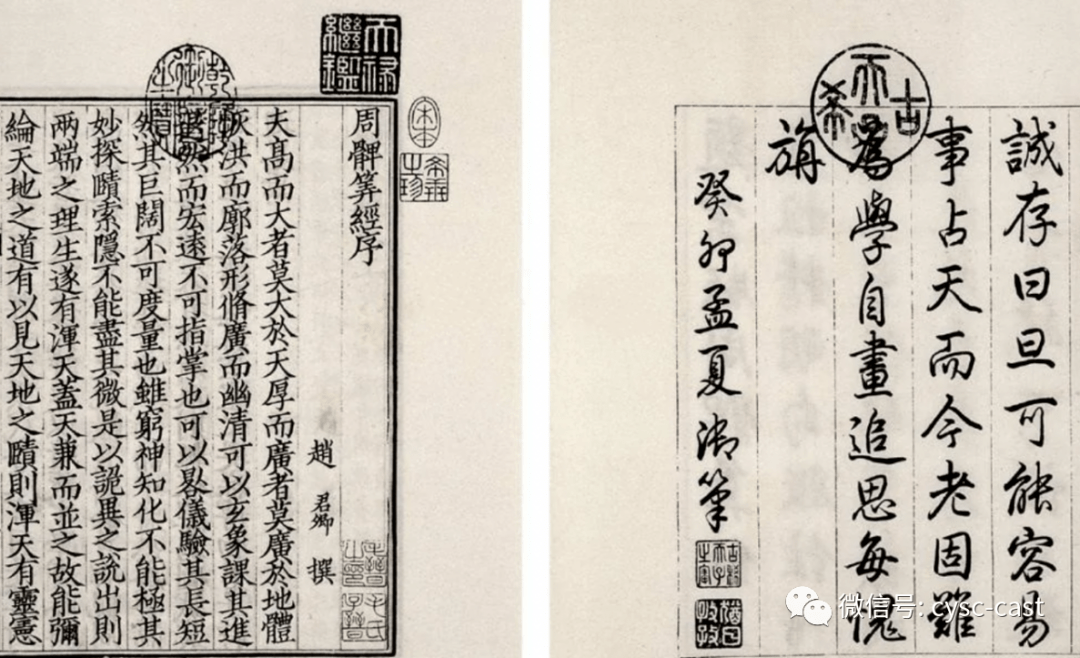 天禄繼鑑
乾隆御覽之寶
宋本
希世之珍
周髀筭經序
趙君卿撰
夫髙而大者莫大於天厚而廣者莫廣於地體
恢洪而廓落形脩廣而幽清可以玄象課其進
然而宏逺不可指掌也可以晷儀驗其長短
然其巨闊不可度量也雖窮神知化不能極其
妙探賾索隱不能盡其微是以詭異之說出則
兩端之理生遂有渾天蓋天兼而並之故能彌
綸天地之道有以見天地之賾則渾天有靈憲
古稀天子
誠存曰旦可能容易
事占天而今老固難
為學自畫追思每愧
旃
癸卯孟夏御筆
猶日孜孜
微信号: cysc-cast